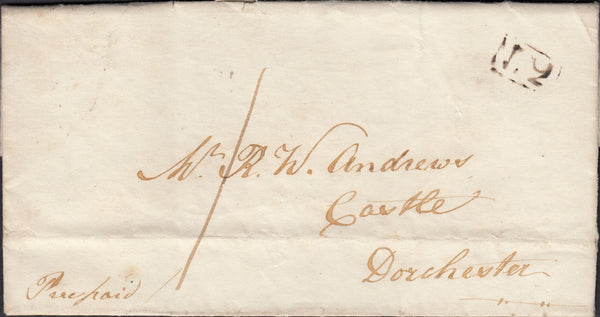 No. 2
Mr. R. W. Andrews
Castle
Dorchester
Prepaid
1